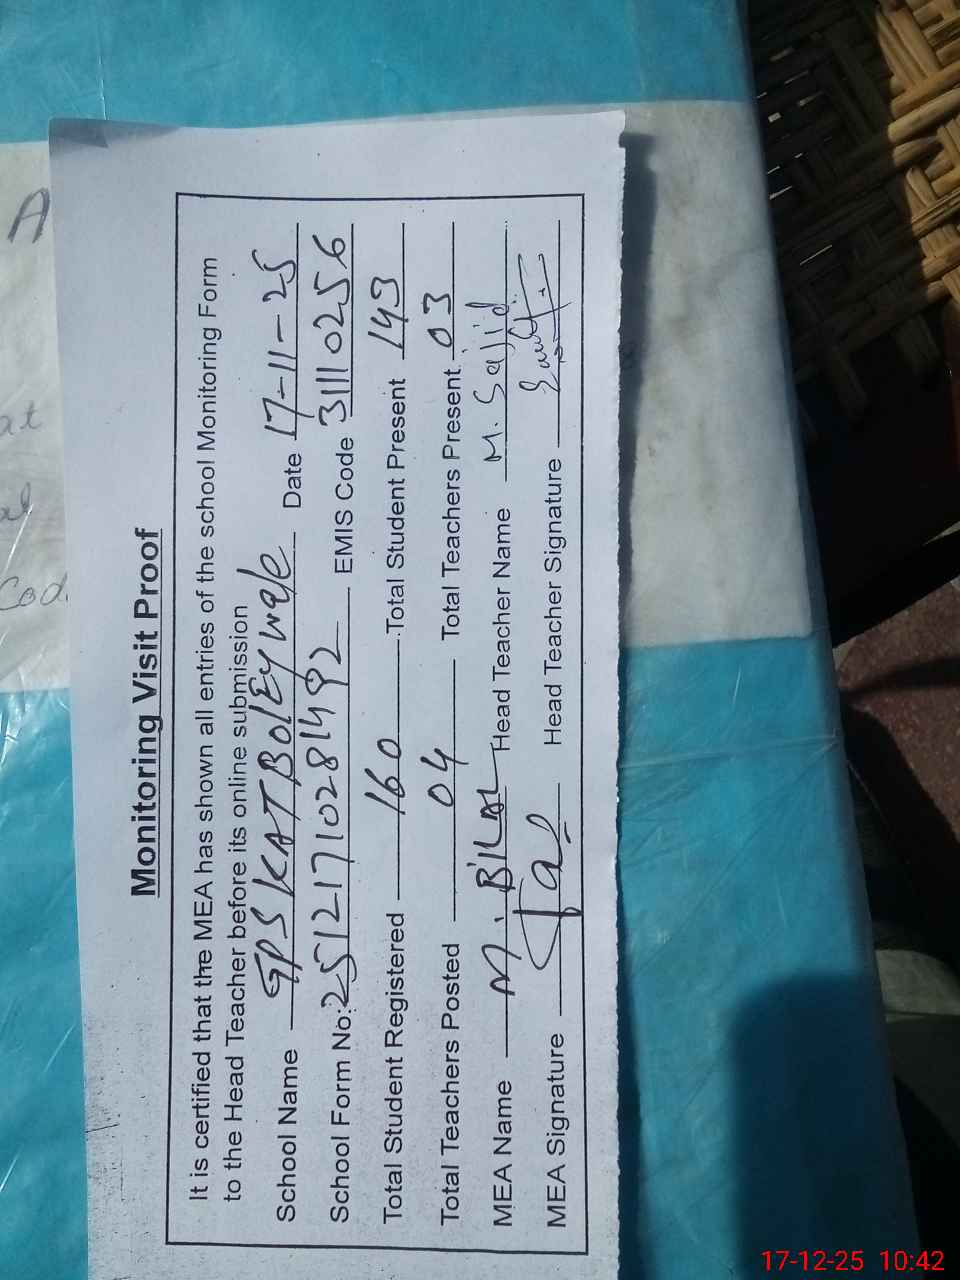 Monitoring Visit Proof
It is certified that the MEA has shown all entries of the school Monitoring Form
to the Head Teacher before its online submission
School Name GPS KAT BOlEywale Date 17-11-25
School Form No: 25121710281492 EMIS Code 31110256
Total Student Registered 160 Total Student Present 143
Total Teachers Posted 04 Total Teachers Present. 03
MEA Name M. BILAL Head Teacher Name M. Sajid
MEA Signature Head Teacher Signature
A
at
al
Cod.
17-12-25 10:42